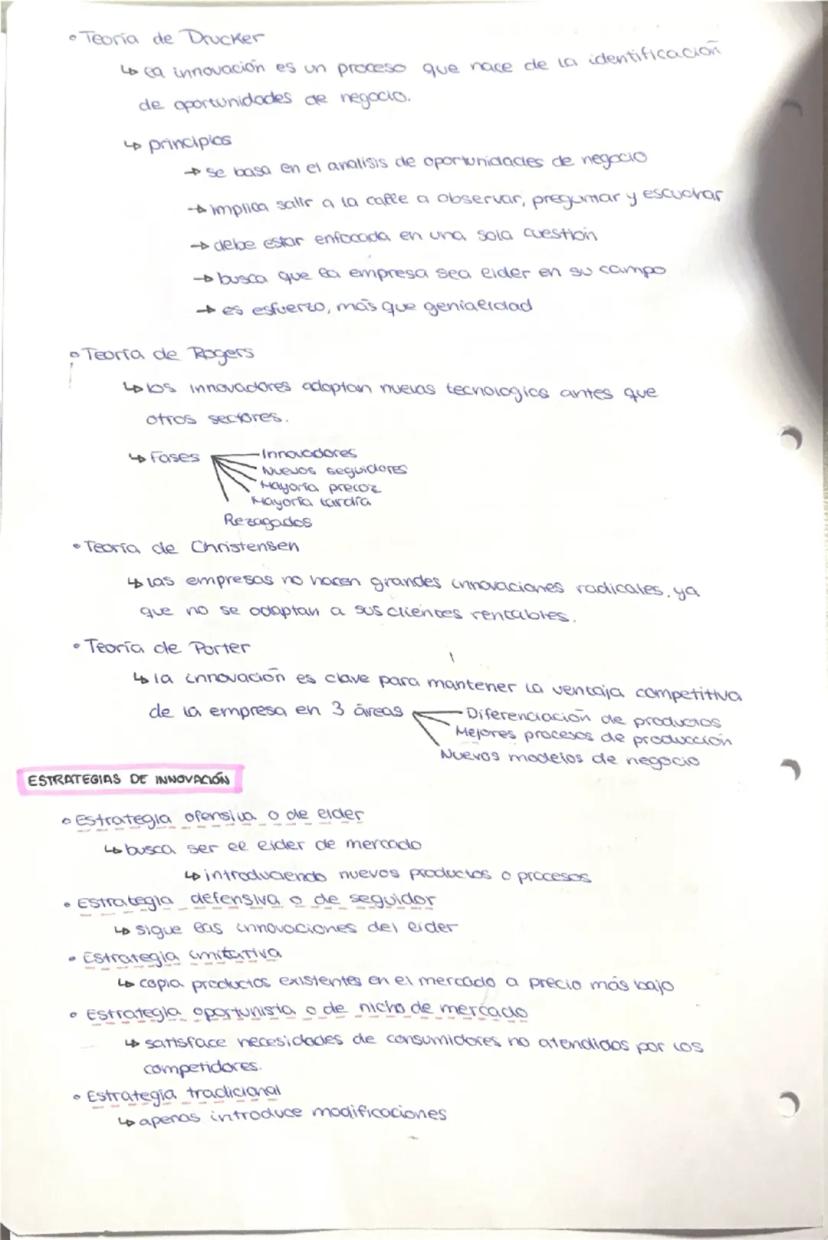 • Teoría de Drucker
↳ la innovación es un proceso que nace de la identificación
de oportunidades de negocio.
↳ principios
→ se basa en el analisis de oportunidades de negocio
→ implica salir a la calle a observar, preguntar y escuchar
→ debe estar enfocada en una sola cuestión
→ busca que la empresa sea lider en su campo
→ es esfuerzo, más que genialidad
• Teoría de Rogers
↳ los innovadores adoptan nuevas tecnologías antes que
otros sectores.
↳ Fases
Innovadores
Nuevos seguidores
Mayoría precoz
Mayoría tardía
Rezagados
• Teoría de Christensen
↳ las empresas no hacen grandes innovaciones radicales, ya
que no se adaptan a sus clientes rentables.
• Teoría de Porter
↳ la innovación es clave para mantener la ventaja competitiva
de la empresa en 3 áreas
Diferenciación de productos
Mejores procesos de producción
Nuevos modelos de negocio
ESTRATEGIAS DE INNOVACIÓN
• Estrategia ofensiva o de lider
↳ busca ser el lider de mercado
↳ introduciendo nuevos productos o procesos
• Estrategia defensiva o de seguidor
↳ sigue las innovaciones del lider
• Estrategia imitativa
↳ copia productos existentes en el mercado a precio más bajo
• Estrategia oportunista o de nicho de mercado
↳ satisface necesidades de consumidores no atendidos por los
competidores.
• Estrategia tradicional
↳ apenas introduce modificaciones